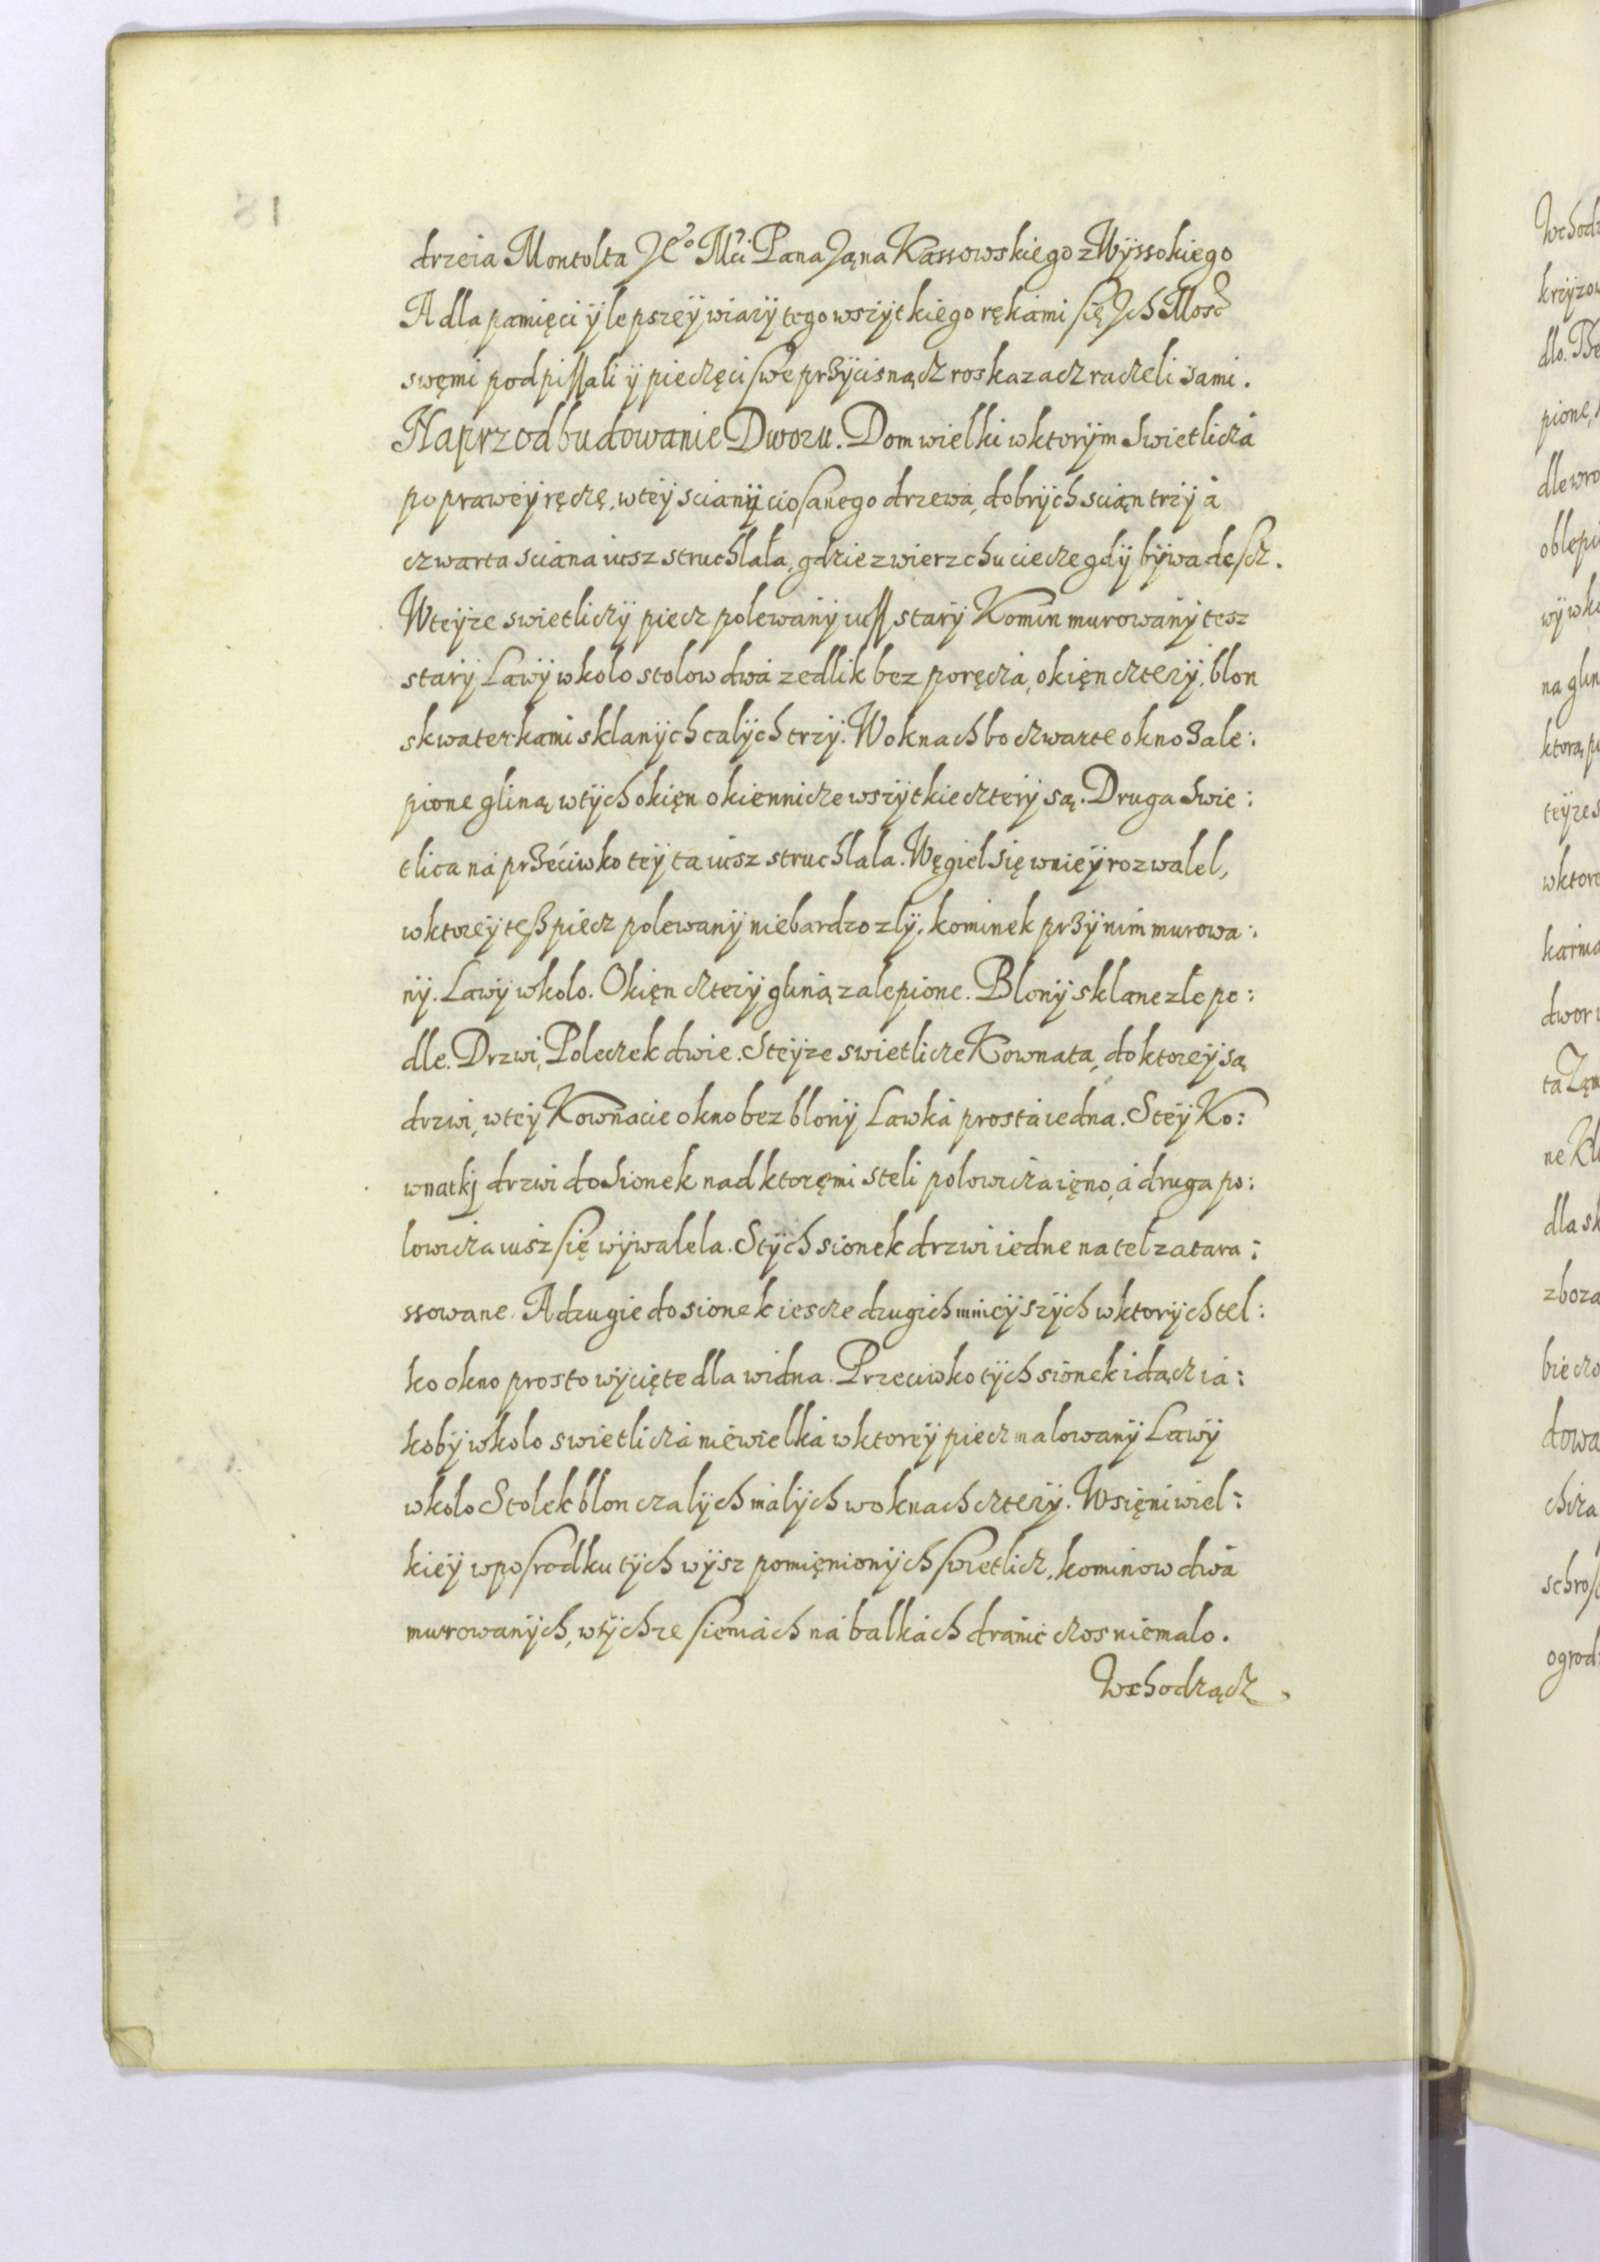 drzeia Montolta Je° Mci Pana Jąna Kassowskiego z Wÿssokiego
A dla pamięci ÿ lepszeÿ wiarÿ tego wszÿtkiego rękami się Jch Mosc
swęmi podpissali ÿ pieczęci swe przÿcisnącz roskazacz raczeli sami.
Naprzod budowanie Dworu. Dom wielki w ktorÿm Swietlicza
po praweÿ ręczę, w teÿ scianÿ ciosanego drzewa, dobrÿch sciąn trzÿ a
czwarta sciana iusz struchlała, gdzie z wierzchu ciecze gdÿ bÿwa descz.
W teÿze swietliczÿ piecz polewanÿ iuss starÿ Komin murowanÿ tesz
starÿ Lawÿ wkolo stolow dwa zedlik bez poręcza, okięn czterÿ, blon
skwaterkami sklanÿch calÿch trzÿ. W oknach bo czwarte okno zale:
pione gliną w tÿch okięn okiennicze wszÿtkie czterÿ są. Druga Swie:
tlica na przeciwko teÿ ta iusz struchlala. Węgiel się w nieÿ rozwalel,
w ktoreÿ tesz piecz polewanÿ niebardzo zlÿ, kominek przÿ nim murowa:
nÿ. Lawÿ wkolo. Okięn czterÿ gliną zalepione. Blonÿ sklane złe po:
dle. Drzwi, Poleczek dwie. S teÿze swietlicze Kownata, do ktoreÿ są
drzwi, w teÿ Kownacie okno bez blonÿ Lawka prosta iedna. S teÿ Ko:
wnatkj drzwi do Sionek nad ktoręmi steli polowicza ięno, a druga po:
lowicza iusz się wÿwalela. S tÿch sionek drzwi iedne na tel zatara:
ssowane. A drugie do sionek iescze drugich mnieÿszÿch w ktorÿch tel:
ko okno prosto wÿcięte dla widna. Przeciwko tÿch sionek idącz ia:
kobÿ wkolo swietlicza niewielka w ktoreÿ piecz malowanÿ Lawÿ
wkolo Stolek blon czalÿch malÿch w oknach czterÿ. W sięni wiel:
kieÿ w posrodku tÿch wÿsz pomięnionÿch swietlicz, kominow dwa
murowanÿch, w tÿchze sieniach na balkach dranic czos niemalo.
Wchodzącz